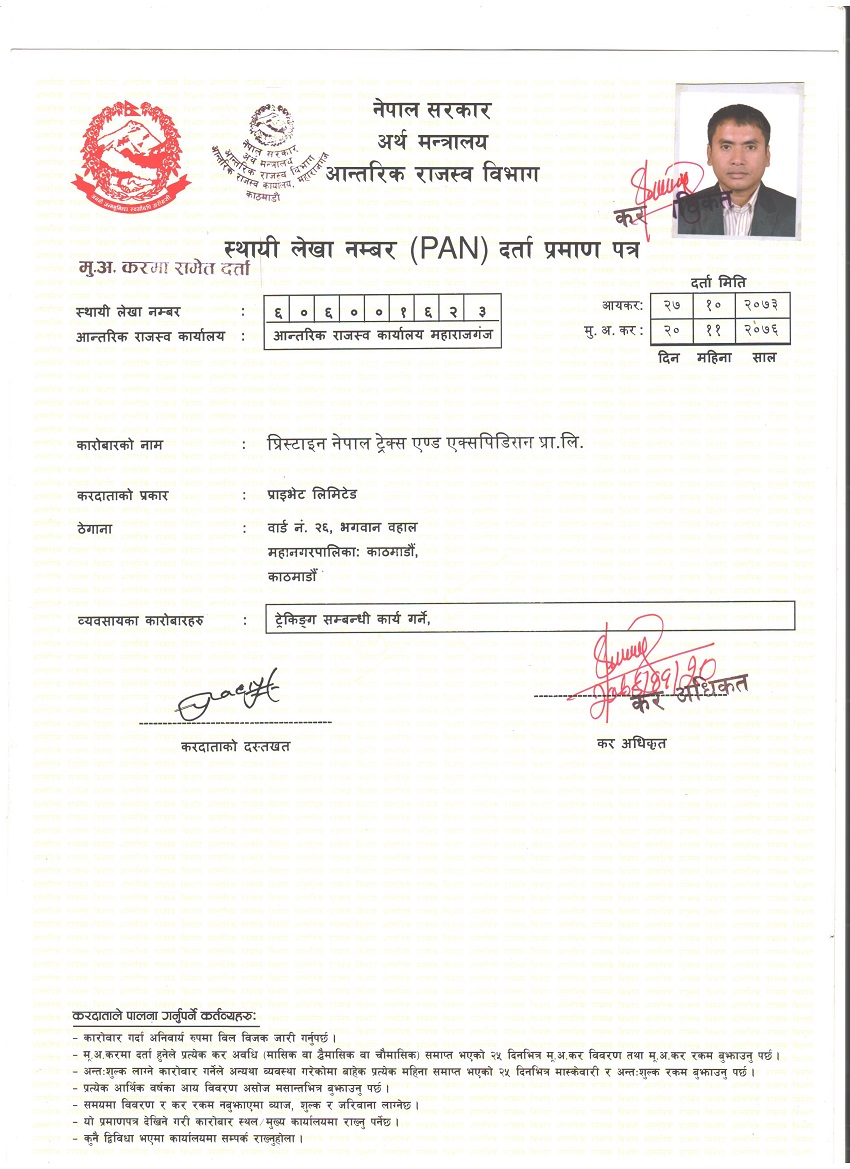 नेपाल सरकार
अर्थ मन्त्रालय
आन्तरिक राजस्व विभाग
नेपाल सरकार
अर्थ मन्त्रालय
आन्तरिक राजस्व विभाग
आन्तरिक राजस्व कार्यालय, महाराजगंज
काठमाडौं
कर
स्थायी लेखा नम्बर (PAN) दर्ता प्रमाण पत्र
मु.अ. करमा समेत दर्ता
दर्ता मिति
स्थायी लेखा नम्बर : ६ ० ६ ० ० १ ६ २ ३
आयकर: २७ १० २०७३
आन्तरिक राजस्व कार्यालय : आन्तरिक राजस्व कार्यालय महाराजगंज
मु. अ. कर : २० ११ २०७६
दिन महिना साल
कारोबारको नाम : प्रिस्टाइन नेपाल ट्रेक्स एण्ड एक्सपिडिशन प्रा.लि.
करदाताको प्रकार : प्राइभेट लिमिटेड
ठेगाना : वार्ड नं. २६, भगवान वहाल
महानगरपालिका: काठमाडौं,
काठमाडौं
व्यवसायका कारोबारहरु : ट्रेकिङ्ग सम्बन्धी कार्य गर्ने,
कर अधिकृत
करदाताको दस्तखत
कर अधिकृत
करदाताले पालना गर्नुपर्ने कर्तव्यहरु:
- कारोबार गर्दा अनिवार्य रुपमा विल विजक जारी गर्नुपर्छ ।
- मू.अ.करमा दर्ता हुनेले प्रत्येक कर अवधि (मासिक वा द्वैमासिक वा चौमासिक) समाप्त भएको २५ दिनभित्र मू.अ.कर विवरण तथा मू.अ.कर रकम बुझाउनु पर्छ ।
- अन्त:शुल्क लाग्ने कारोबार गर्नेले अन्यथा व्यवस्था गरेकोमा बाहेक प्रत्येक महिना समाप्त भएको २५ दिनभित्र मास्केवारी र अन्त:शुल्क रकम बुझाउनु पर्छ ।
- प्रत्येक आर्थिक वर्षका आय विवरण असोज मसान्तभित्र बुझाउनु पर्छ ।
- समयमा विवरण र कर रकम नबुझाएमा व्याज, शुल्क र जरिवाना लाग्नेछ ।
- यो प्रमाणपत्र देखिने गरी कारोबार स्थल/मुख्य कार्यालयमा राख्नु पर्नेछ ।
- कुनै द्विविधा भएमा कार्यालयमा सम्पर्क राख्नुहोला ।